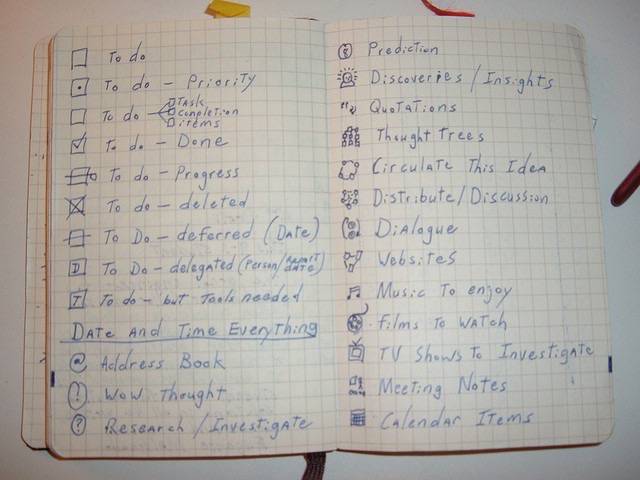 To do
To do - Priority
To do - Task
completion
items
To do - Done
To do - Progress
To do - deleted
To Do - deferred (Date)
D To Do - delegated (Person/ DATE)
T To do - but Tools needed
Date and Time Everything
@ Address Book
! Wow Thought
? Research / Investigate
Prediction
Discoveries / Insights
Quotations
Thought Trees
Circulate This Idea
Distribute / Discussion
Dialogue
Websites
Music To enjoy
films To watch
TV Shows To Investigate
Meeting Notes
Calendar Items